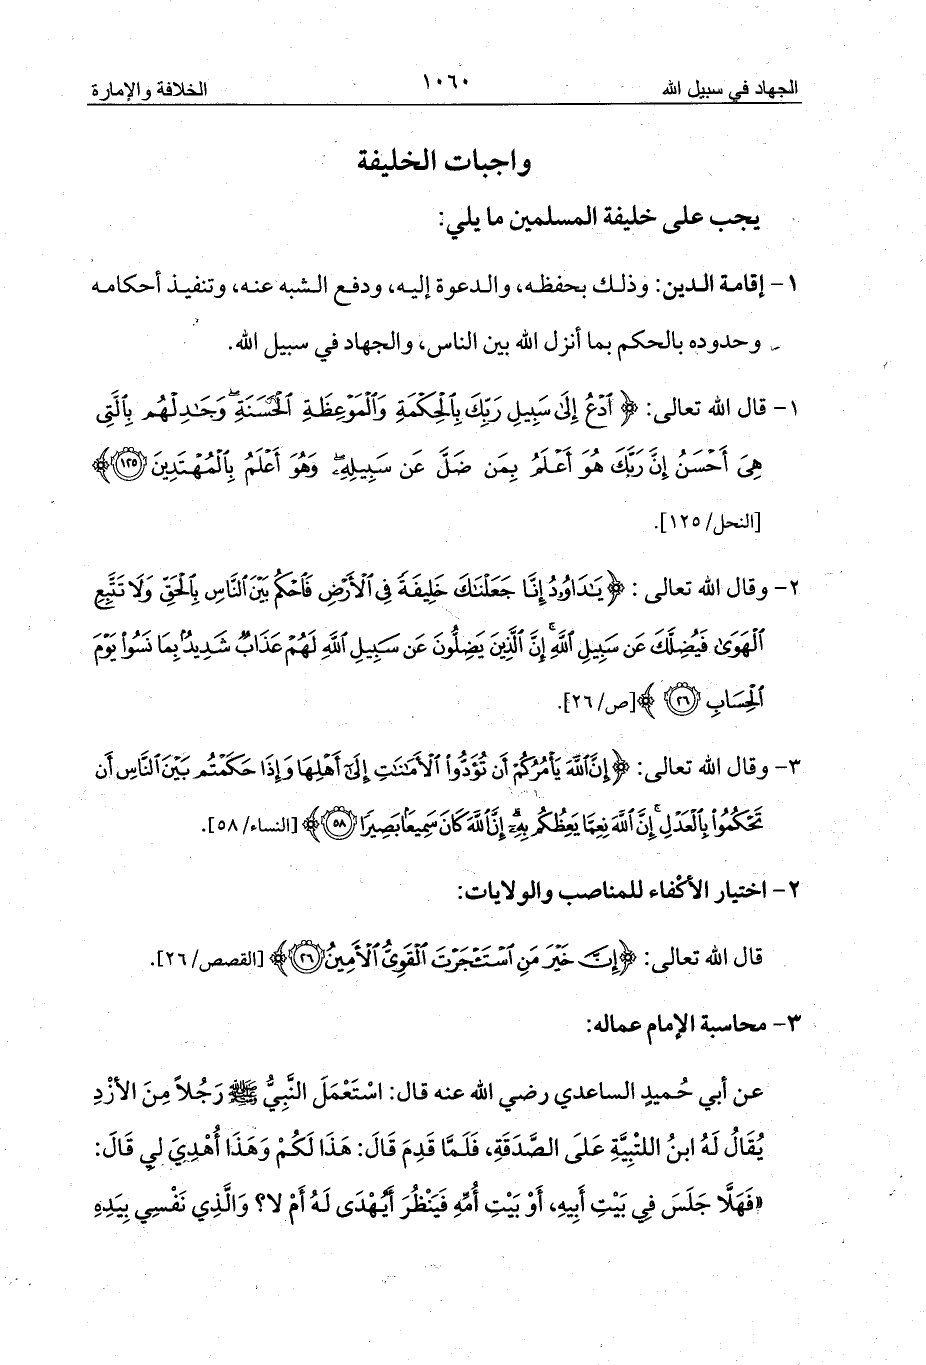 الجهاد في سبيل الله ١٠٦٠ الخلافة والإمارة
واجبات الخليفة
يجب على خليفة المسلمين ما يلي:
١- إقامة الدين: وذلك بحفظه، والدعوة إليه، ودفع الشبه عنه، وتنفيذ أحكامه
وحدوده بالحكم بما أنزل الله بين الناس، والجهاد في سبيل الله.
١- قال الله تعالى: ﴿ٱدْعُ إِلَىٰ سَبِيلِ رَبِّكَ بِٱلْحِكْمَةِ وَٱلْمَوْعِظَةِ ٱلْحَسَنَةِ ۖ وَجَٰدِلْهُم بِٱلَّتِى
هِىَ أَحْسَنُ إِنَّ رَبَّكَ هُوَ أَعْلَمُ بِمَن ضَلَّ عَن سَبِيلِهِۦ ۖ وَهُوَ أَعْلَمُ بِٱلْمُهْتَدِينَ ١٢٥﴾
[النحل/١٢٥].
٢- وقال الله تعالى : ﴿يَٰدَاوُۥدُ إِنَّا جَعَلْنَٰكَ خَلِيفَةً فِى ٱلْأَرْضِ فَٱحْكُم بَيْنَ ٱلنَّاسِ بِٱلْحَقِّ وَلَا تَتَّبِعِ
ٱلْهَوَىٰ فَيُضِلَّكَ عَن سَبِيلِ ٱللَّهِ ۚ إِنَّ ٱلَّذِينَ يَضِلُّونَ عَن سَبِيلِ ٱللَّهِ لَهُمْ عَذَابٌ شَدِيدٌۢ بِمَا نَسُوا۟ يَوْمَ
ٱلْحِسَابِ ٢٦﴾ [ص/٢٦].
٣- وقال الله تعالى: ﴿إِنَّ ٱللَّهَ يَأْمُرُكُمْ أَن تُؤَدُّوا۟ ٱلْأَمَٰنَٰتِ إِلَىٰٓ أَهْلِهَا وَإِذَا حَكَمْتُم بَيْنَ ٱلنَّاسِ أَن
تَحْكُمُوا۟ بِٱلْعَدْلِ ۚ إِنَّ ٱللَّهَ نِعِمَّا يَعِظُكُم بِهِۦٓ ۗ إِنَّ ٱللَّهَ كَانَ سَمِيعًۢا بَصِيرًا ٥٨﴾ [النساء/٥٨].
٢- اختيار الأكْفاء للمناصب والولايات:
قال الله تعالى: ﴿إِنَّ خَيْرَ مَنِ ٱسْتَـْٔجَرْتَ ٱلْقَوِىُّ ٱلْأَمِينُ ٢٦﴾ [القصص/٢٦].
٣- محاسبة الإمام عماله:
عن أبي حُميدٍ الساعدي رضي الله عنه قال: اسْتَعْمَلَ النَّبِيُّ ﷺ رَجُلاً مِنَ الأَزْدِ
يُقَالُ لَهُ ابنُ اللتبِيَّةِ عَلَى الصَّدَقَةِ، فَلَمَّا قَدِمَ قَالَ: هَذَا لَكُمْ وَهَذَا أُهْدِيَ لِي قَالَ:
«فَهَلَّا جَلَسَ فِي بَيْتِ أَبِيهِ، أَوْ بَيْتِ أُمِّهِ فَيَنْظُرَ أَيُهْدَى لَهُ أَمْ لا؟ وَالَّذِي نَفْسِي بِيَدِهِ